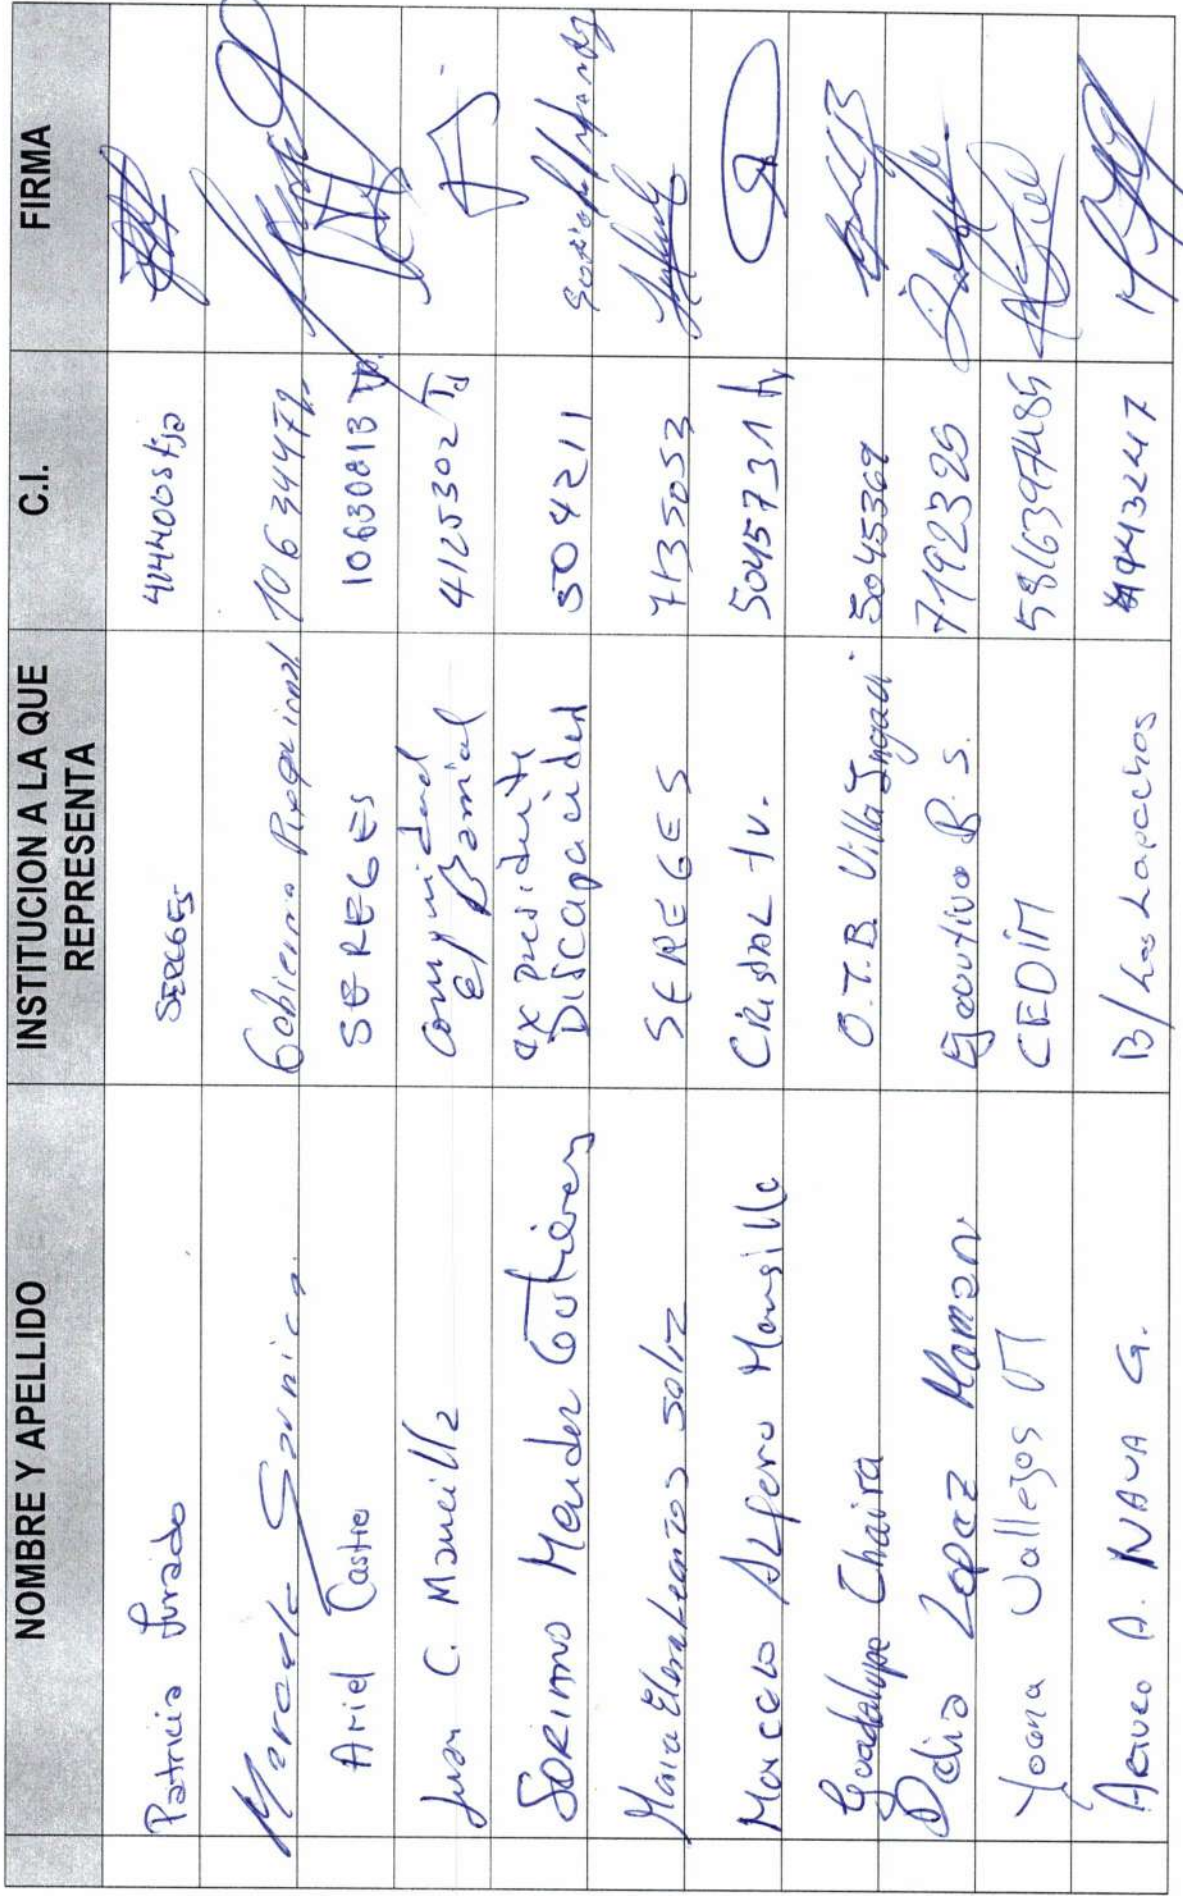 NOMBRE Y APELLIDO INSTITUCION A LA QUE REPRESENTA C.I. FIRMA
Patricia Jurado SEREGES 4144005 tja
Marcela Sarnica Gobierno Regional 10634479
Ariel Castro SEREGES 10630813
Juan C. Mancilla Comunidad E/ Bamial 4125302
SORIANO Mendez Gutierrez ex presidente Discapacidad 504211
Maria Elena Leanzos Soliz SEREGES 7135053
Marcelo Alfero Mansilla Cristal tv. 5045731 tj
Guadalupe Chaira O.T.B. Villa Ingavi 5045369
Delia Lopez Maman Ejecutivo R.S. 7192395
Yoana Vallejos M CEDIM
A. NAVA G. B/ Los Lapachos